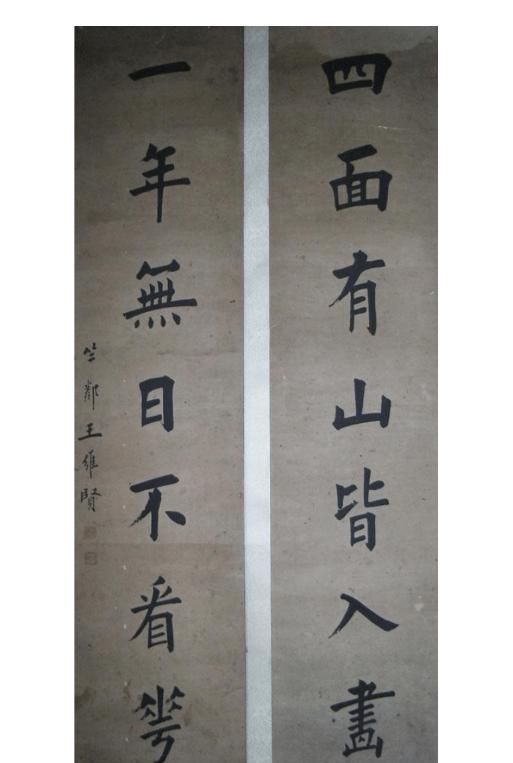 四面有山皆入畫
一年無日不看花
竺鄰王維賢